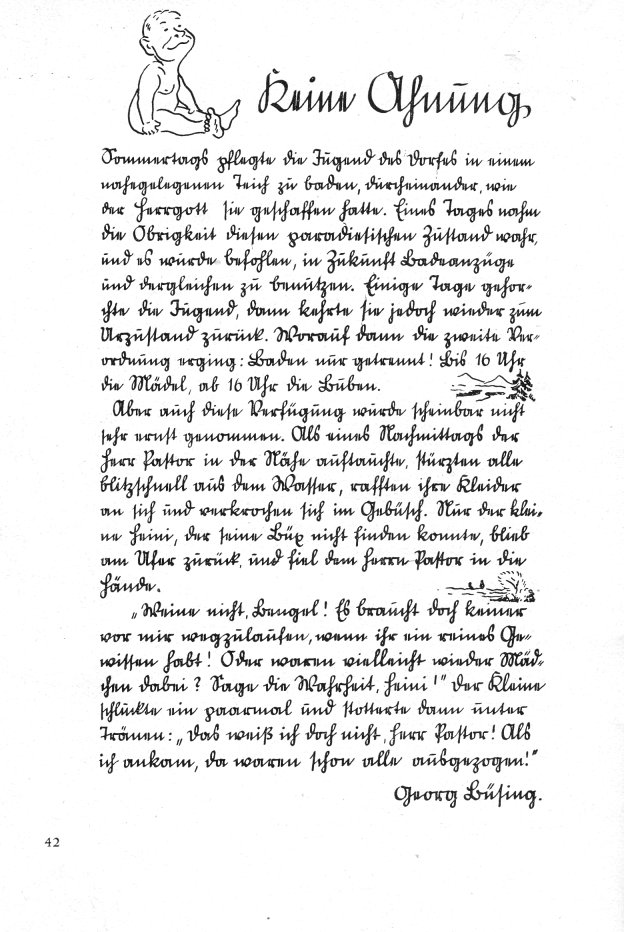 Keine Ahnung
Sommertags pflegte die Jugend des Dorfes in einem
nahegelegenen Teich zu baden, durcheinander, wie
der Herrgott sie geschaffen hatte. Eines Tages nahm
die Obrigkeit diesen paradiesischen Zustand wahr,
und es wurde befohlen, in Zukunft Badeanzüge
und dergleichen zu benutzen. Einige Tage gehor-
chte die Jugend, dann kehrte sie jedoch wieder zum
Urzustand zurück. Worauf dann die zweite Ver-
ordnung erging: Baden nur getrennt! Bis 16 Uhr
die Mädel, ab 16 Uhr die Buben.
Aber auch diese Verfügung wurde scheinbar nicht
sehr ernst genommen. Als eines Nachmittags der
Herr Pastor in der Nähe auftauchte, stürzten alle
blitzschnell aus dem Wasser, rafften ihre Kleider
an sich und verkrochen sich im Gebüsch. Nur der klei-
ne Heini, der seine Büx nicht finden konnte, blieb
am Ufer zurück, und fiel dem Herrn Pastor in die
Hände.
„Weine nicht, Bengel! Es braucht doch keiner
vor mir wegzulaufen, wenn ihr ein reines Ge-
wissen habt! Oder waren vielleicht wieder Mäd-
chen dabei? Sage die Wahrheit, Heini!" Der Kleine
schluckte ein paarmal und stotterte dann unter
Tränen: „Das weiß ich doch nicht, Herr Pastor! Als
ich ankam, da waren schon alle ausgezogen!"
Georg Büsing.
42